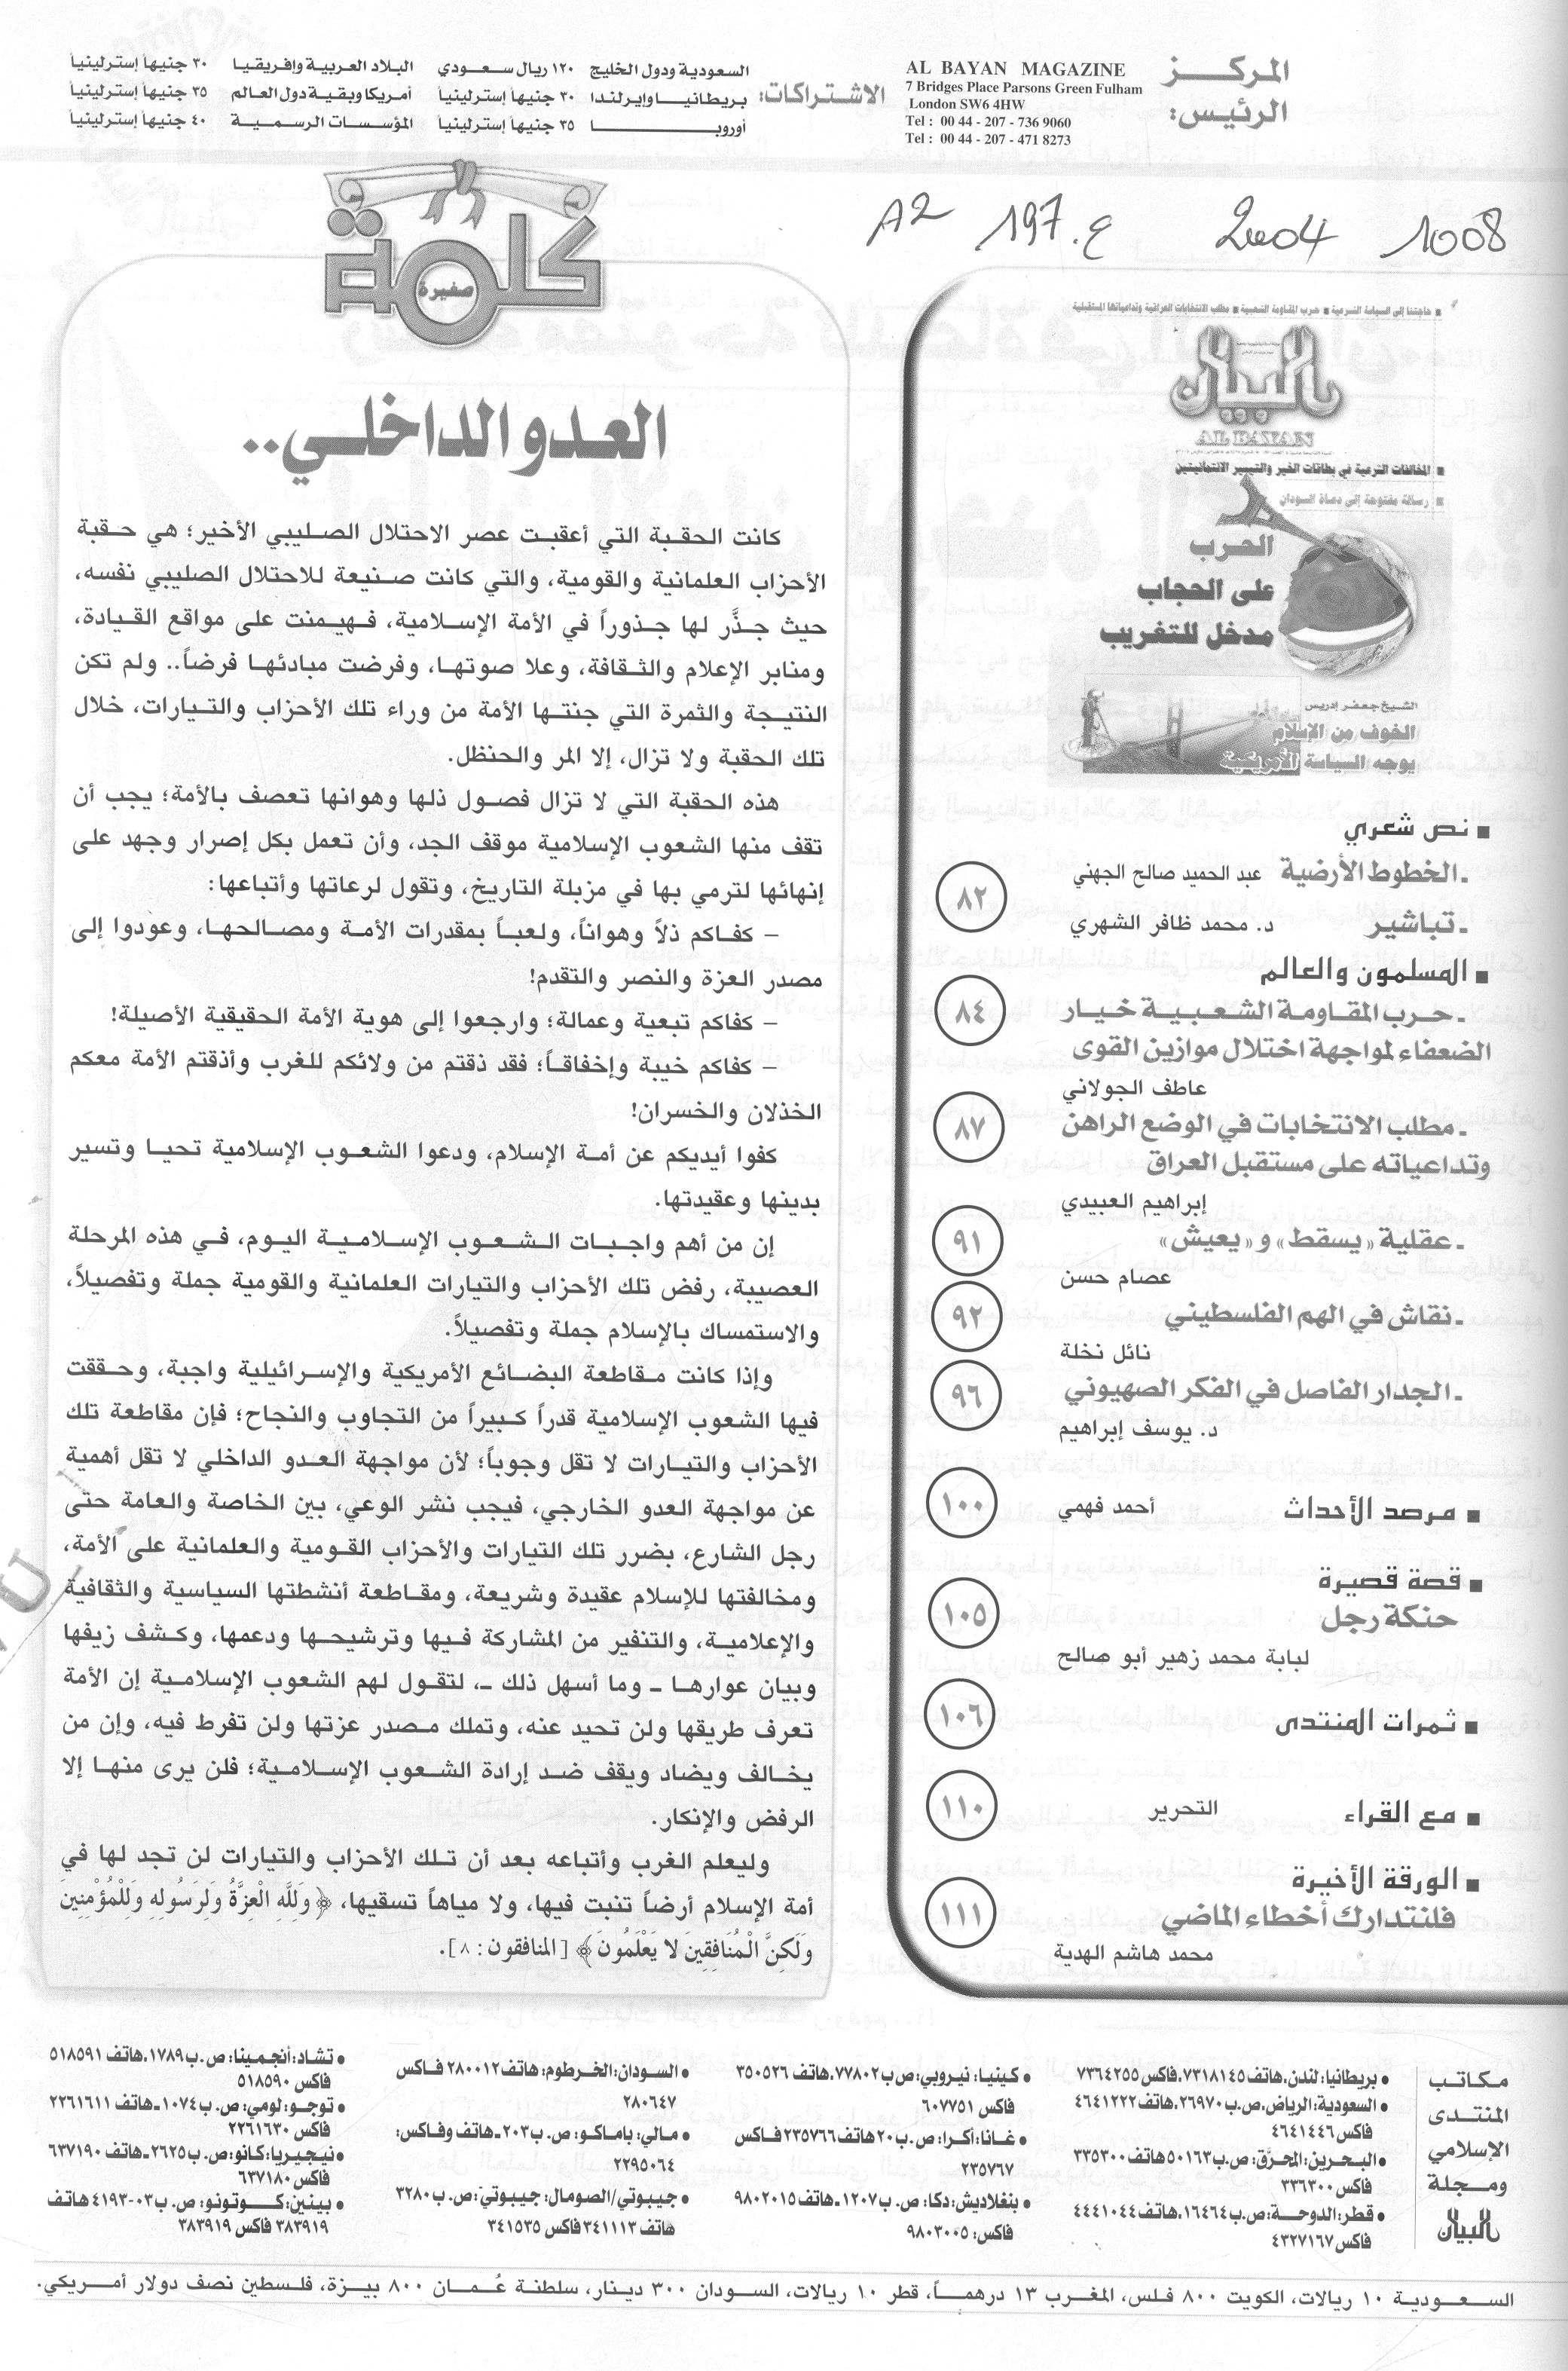 المركز الرئيس:
AL BAYAN MAGAZINE
7 Bridges Place Parsons Green Fulham
London SW6 4HW
Tel : 00 44 - 207 - 736 9060
Tel : 00 44 - 207 - 471 8273
الاشتراكات:
السعودية ودول الخليج ١٢٠ ريال سعودي
بريطانيا وايرلندا ٣٠ جنيهاً إسترلينياً
أوروبا ٣٥ جنيهاً إسترلينياً
البلاد العربية وإفريقيا ٣٠ جنيهاً إسترلينياً
أمريكا وبقية دول العالم ٣٥ جنيهاً إسترلينياً
المؤسسات الرسمية ٤٠ جنيهاً إسترلينياً
A2 197.ع 2004 1008
■ حاجتنا إلى السياسة الشرعية ■ حرب المقاومة الشعبية ■ مطلب الانتخابات العراقية وتداعياتها المستقبلية
البيان
AL BAYAN
■ المخالفات الشرعية في بطاقات الخير والتيسير الائتمانيتين
■ رسالة مفتوحة إلى دعاة السودان
الحرب
على الحجاب
مدخل للتغريب
الشيخ جعفر إدريس
الخوف من الإسلام
يوجه السياسة الأمريكية
■ نص شعري
ـ الخطوط الأرضية عبد الحميد صالح الجهني ٨٢
ـ تباشير د. محمد ظافر الشهري
■ المسلمون والعالم
ـ حرب المقاومة الشعبية خيار ٨٤
الضعفاء لمواجهة اختلال موازين القوى
عاطف الجولاني
ـ مطلب الانتخابات في الوضع الراهن ٨٧
وتداعياته على مستقبل العراق
إبراهيم العبيدي
ـ عقلية «يسقط» و«يعيش» ٩١
عصام حسن
ـ نقاش في الهم الفلسطيني ٩٢
نائل نخلة
ـ الجدار الفاصل في الفكر الصهيوني ٩٦
د. يوسف إبراهيم
■ مرصد الأحداث أحمد فهمي ١٠٠
■ قصة قصيرة
حنكة رجل ١٠٥
لبابة محمد زهير أبو صالح
■ ثمرات المنتدى ١٠٦
■ مع القراء التحرير ١١٠
■ الورقة الأخيرة
فلنتدارك أخطاء الماضي ١١١
محمد هاشم الهدية
كلمة
صغيرة
العدو الداخلي..
كانت الحقبة التي أعقبت عصر الاحتلال الصليبي الأخير؛ هي حقبة
الأحزاب العلمانية والقومية، والتي كانت صنيعة للاحتلال الصليبي نفسه،
حيث جذَّر لها جذوراً في الأمة الإسلامية، فهيمنت على مواقع القيادة،
ومنابر الإعلام والثقافة، وعلا صوتها، وفرضت مبادئها فرضاً.. ولم تكن
النتيجة والثمرة التي جنتها الأمة من وراء تلك الأحزاب والتيارات، خلال
تلك الحقبة ولا تزال، إلا المر والحنظل.
هذه الحقبة التي لا تزال فصول ذلها وهوانها تعصف بالأمة؛ يجب أن
تقف منها الشعوب الإسلامية موقف الجد، وأن تعمل بكل إصرار وجهد على
إنهائها لترمي بها في مزبلة التاريخ، وتقول لرعاتها وأتباعها:
– كفاكم ذلاً وهواناً، ولعباً بمقدرات الأمة ومصالحها، وعودوا إلى
مصدر العزة والنصر والتقدم!
– كفاكم تبعية وعمالة؛ وارجعوا إلى هوية الأمة الحقيقية الأصيلة!
– كفاكم خيبة وإخفاقاً؛ فقد ذقتم من ولائكم للغرب وأذقتم الأمة معكم
الخذلان والخسران!
كفوا أيديكم عن أمة الإسلام، ودعوا الشعوب الإسلامية تحيا وتسير
بدينها وعقيدتها.
إن من أهم واجبات الشعوب الإسلامية اليوم، في هذه المرحلة
العصيبة، رفض تلك الأحزاب والتيارات العلمانية والقومية جملة وتفصيلاً،
والاستمساك بالإسلام جملة وتفصيلاً.
وإذا كانت مقاطعة البضائع الأمريكية والإسرائيلية واجبة، وحققت
فيها الشعوب الإسلامية قدراً كبيراً من التجاوب والنجاح؛ فإن مقاطعة تلك
الأحزاب والتيارات لا تقل وجوباً؛ لأن مواجهة العدو الداخلي لا تقل أهمية
عن مواجهة العدو الخارجي، فيجب نشر الوعي، بين الخاصة والعامة حتى
رجل الشارع، بضرر تلك التيارات والأحزاب القومية والعلمانية على الأمة،
ومخالفتها للإسلام عقيدة وشريعة، ومقاطعة أنشطتها السياسية والثقافية
والإعلامية، والتنفير من المشاركة فيها وترشيحها ودعمها، وكشف زيفها
وبيان عوارها ـ وما أسهل ذلك ـ، لتقول لهم الشعوب الإسلامية إن الأمة
تعرف طريقها ولن تحيد عنه، وتملك مصدر عزتها ولن تفرط فيه، وإن من
يخالف ويضاد ويقف ضد إرادة الشعوب الإسلامية؛ فلن يرى منها إلا
الرفض والإنكار.
وليعلم الغرب وأتباعه بعد أن تلك الأحزاب والتيارات لن تجد لها في
أمة الإسلام أرضاً تنبت فيها، ولا مياهاً تسقيها، ﴿ وَلِلَّهِ الْعِزَّةُ وَلِرَسُولِهِ وَلِلْمُؤْمِنِينَ
وَلَكِنَّ الْمُنَافِقِينَ لا يَعْلَمُونَ ﴾ [المنافقون: ٨].
مكاتب
المنتدى
الإسلامي
ومجلة
البيان
● بريطانيا: لندن، هاتف ٧٣١٨١٤٥، فاكس ٧٣٦٤٢٥٥
● السعودية: الرياض، ص.ب ٢٦٩٧٠، هاتف ٤٦٤١٢٢٢
فاكس ٤٦٤١٤٤٦
● البحرين: المحرَّق: ص.ب ٥٠١٦٣ هاتف ٣٣٥٣٠٠
فاكس ٣٣٦٣٠٠
● قطر: الدوحة: ص.ب ١٦٤٦٤، هاتف ٤٤٤١٠٤٤
فاكس ٤٣٢٧١٦٧
● كينيا: نيروبي: ص ب ٧٧٨٠٢، هاتف ٣٥٠٥٢٦
فاكس ٦٠٧٧٥١
● غانا: أكرا: ص. ب ٢٠ هاتف ٢٣٥٧٦٦ فاكس
٢٣٥٧٦٧
● بنغلاديش: دكا: ص. ب ١٢٠٧ ـ هاتف ٩٨٠٢٠١٥
فاكس: ٩٨٠٣٠٠٥
● السودان: الخرطوم: هاتف ٢٨٠٠١٢ فاكس
٢٨٠٦٤٧
● مالي: باماكو: ص. ب ٢٠٣ ـ هاتف وفاكس:
٢٢٩٥٠٦٤
● جيبوتي/الصومال: جيبوتي: ص. ب ٣٢٨٠
هاتف ٣٤١١١٣ فاكس ٣٤١٥٣٥
● تشاد: أنجمينا: ص. ب ١٧٨٩، هاتف ٥١٨٥٩١
فاكس ٥١٨٥٩٠
● توجو: لومي: ص. ب ١٠٧٤ ـ هاتف ٢٢٦١٦١١
فاكس ٢٢٦١٦٣٠
● نيجيريا: كانو: ص. ب ٢٦٢٥ ـ هاتف ٦٣٧١٩٠
فاكس ٦٣٧١٨٠
● بينين: كوتونو: ص. ب ٠٣-٤١٩٣ هاتف
٣٨٣٩١٩ فاكس ٣٨٣٩١٩
السعودية ١٠ ريالات، الكويت ٨٠٠ فلس، المغرب ١٣ درهماً، قطر ١٠ ريالات، السودان ٣٠٠ دينار، سلطنة عُمان ٨٠٠ بيزة، فلسطين نصف دولار أمريكي.